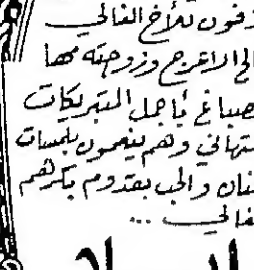 زفون للأخ الغالي
لح الاعرج وزوجته مها
صباغ بأجمل التبريكات
تهاني وهم ينعمون بلمسات
نان والحب بقدوم بكرهم
غالي ...